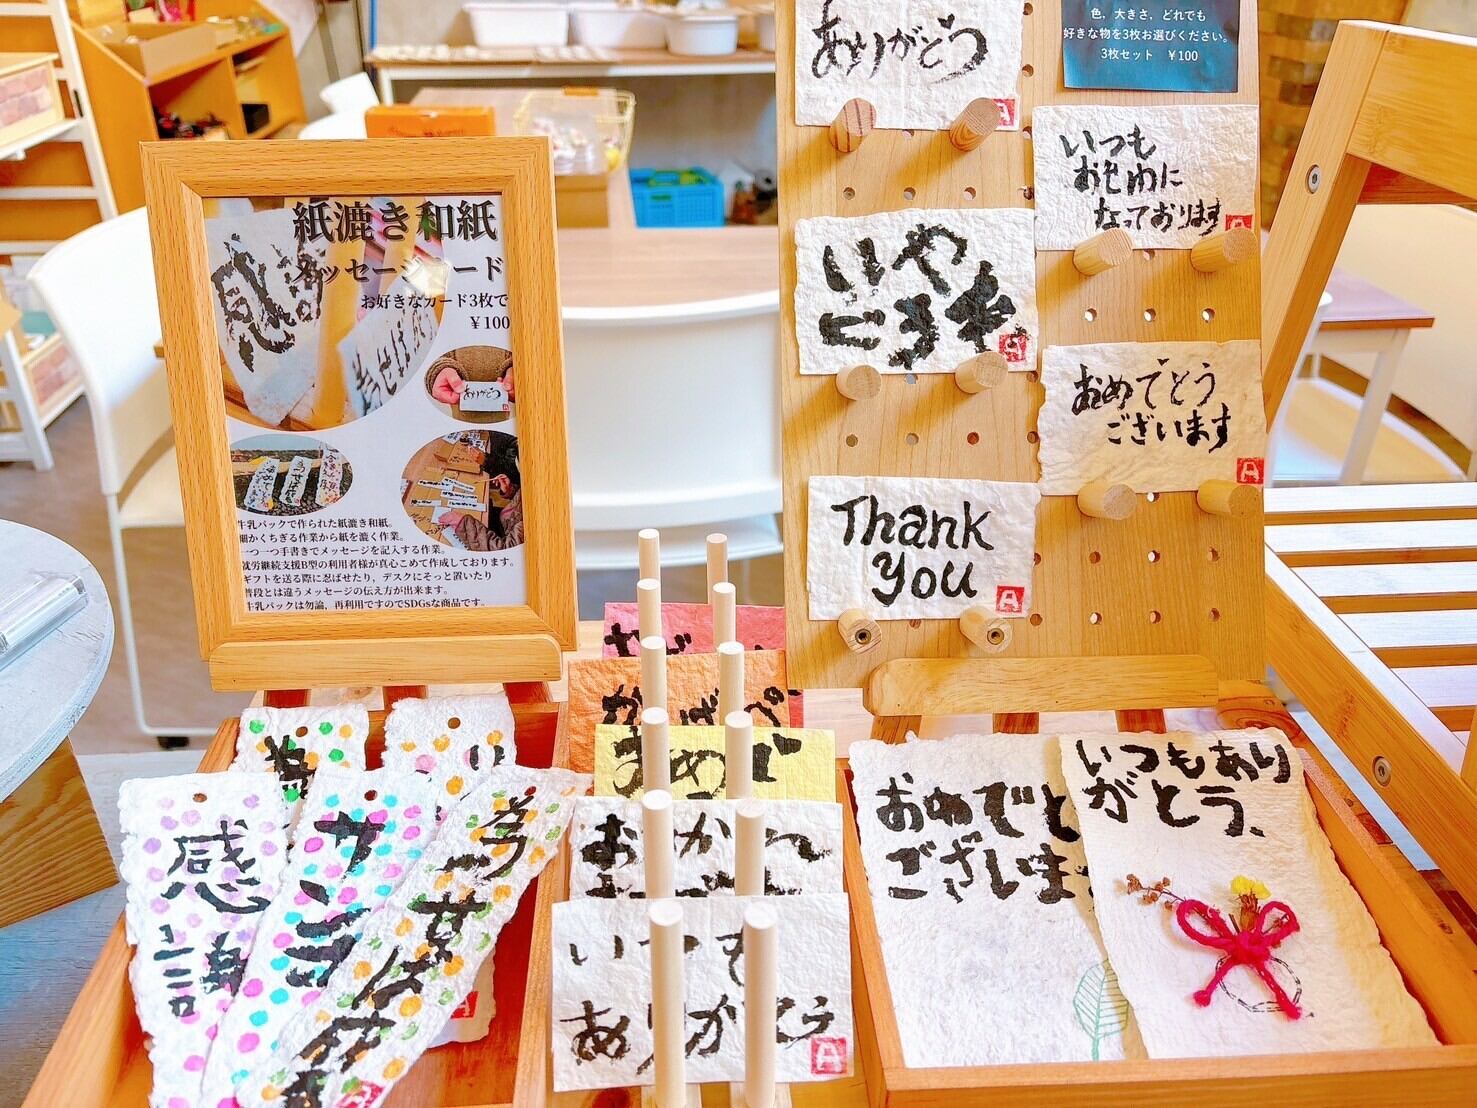 紙漉き和紙
メッセージカード
お好きなカード3枚で
￥100
ありがとう
牛乳パックで作られた紙漉き和紙。
細かくちぎる作業から紙を漉く作業。
一つ一つ手書きでメッセージを記入する作業。
就労継続支援B型の利用者様が真心こめて作成しております。
ギフトを送る際に忍ばせたり，デスクにそっと置いたり
普段とは違うメッセージの伝え方が出来ます。
牛乳パックは勿論，再利用ですのでSDGsな商品です。
ありがとう
A
色，大きさ，どれでも
好きな物を3枚お選びください。
3枚セット　￥100
いつも
お世わに
なっております
A
A
おめでとう
ございます
A
Thank
you
A
感謝
サンヨ
いつも
ありがとう
A
おめでと
ございま
いつもあり
がとう、